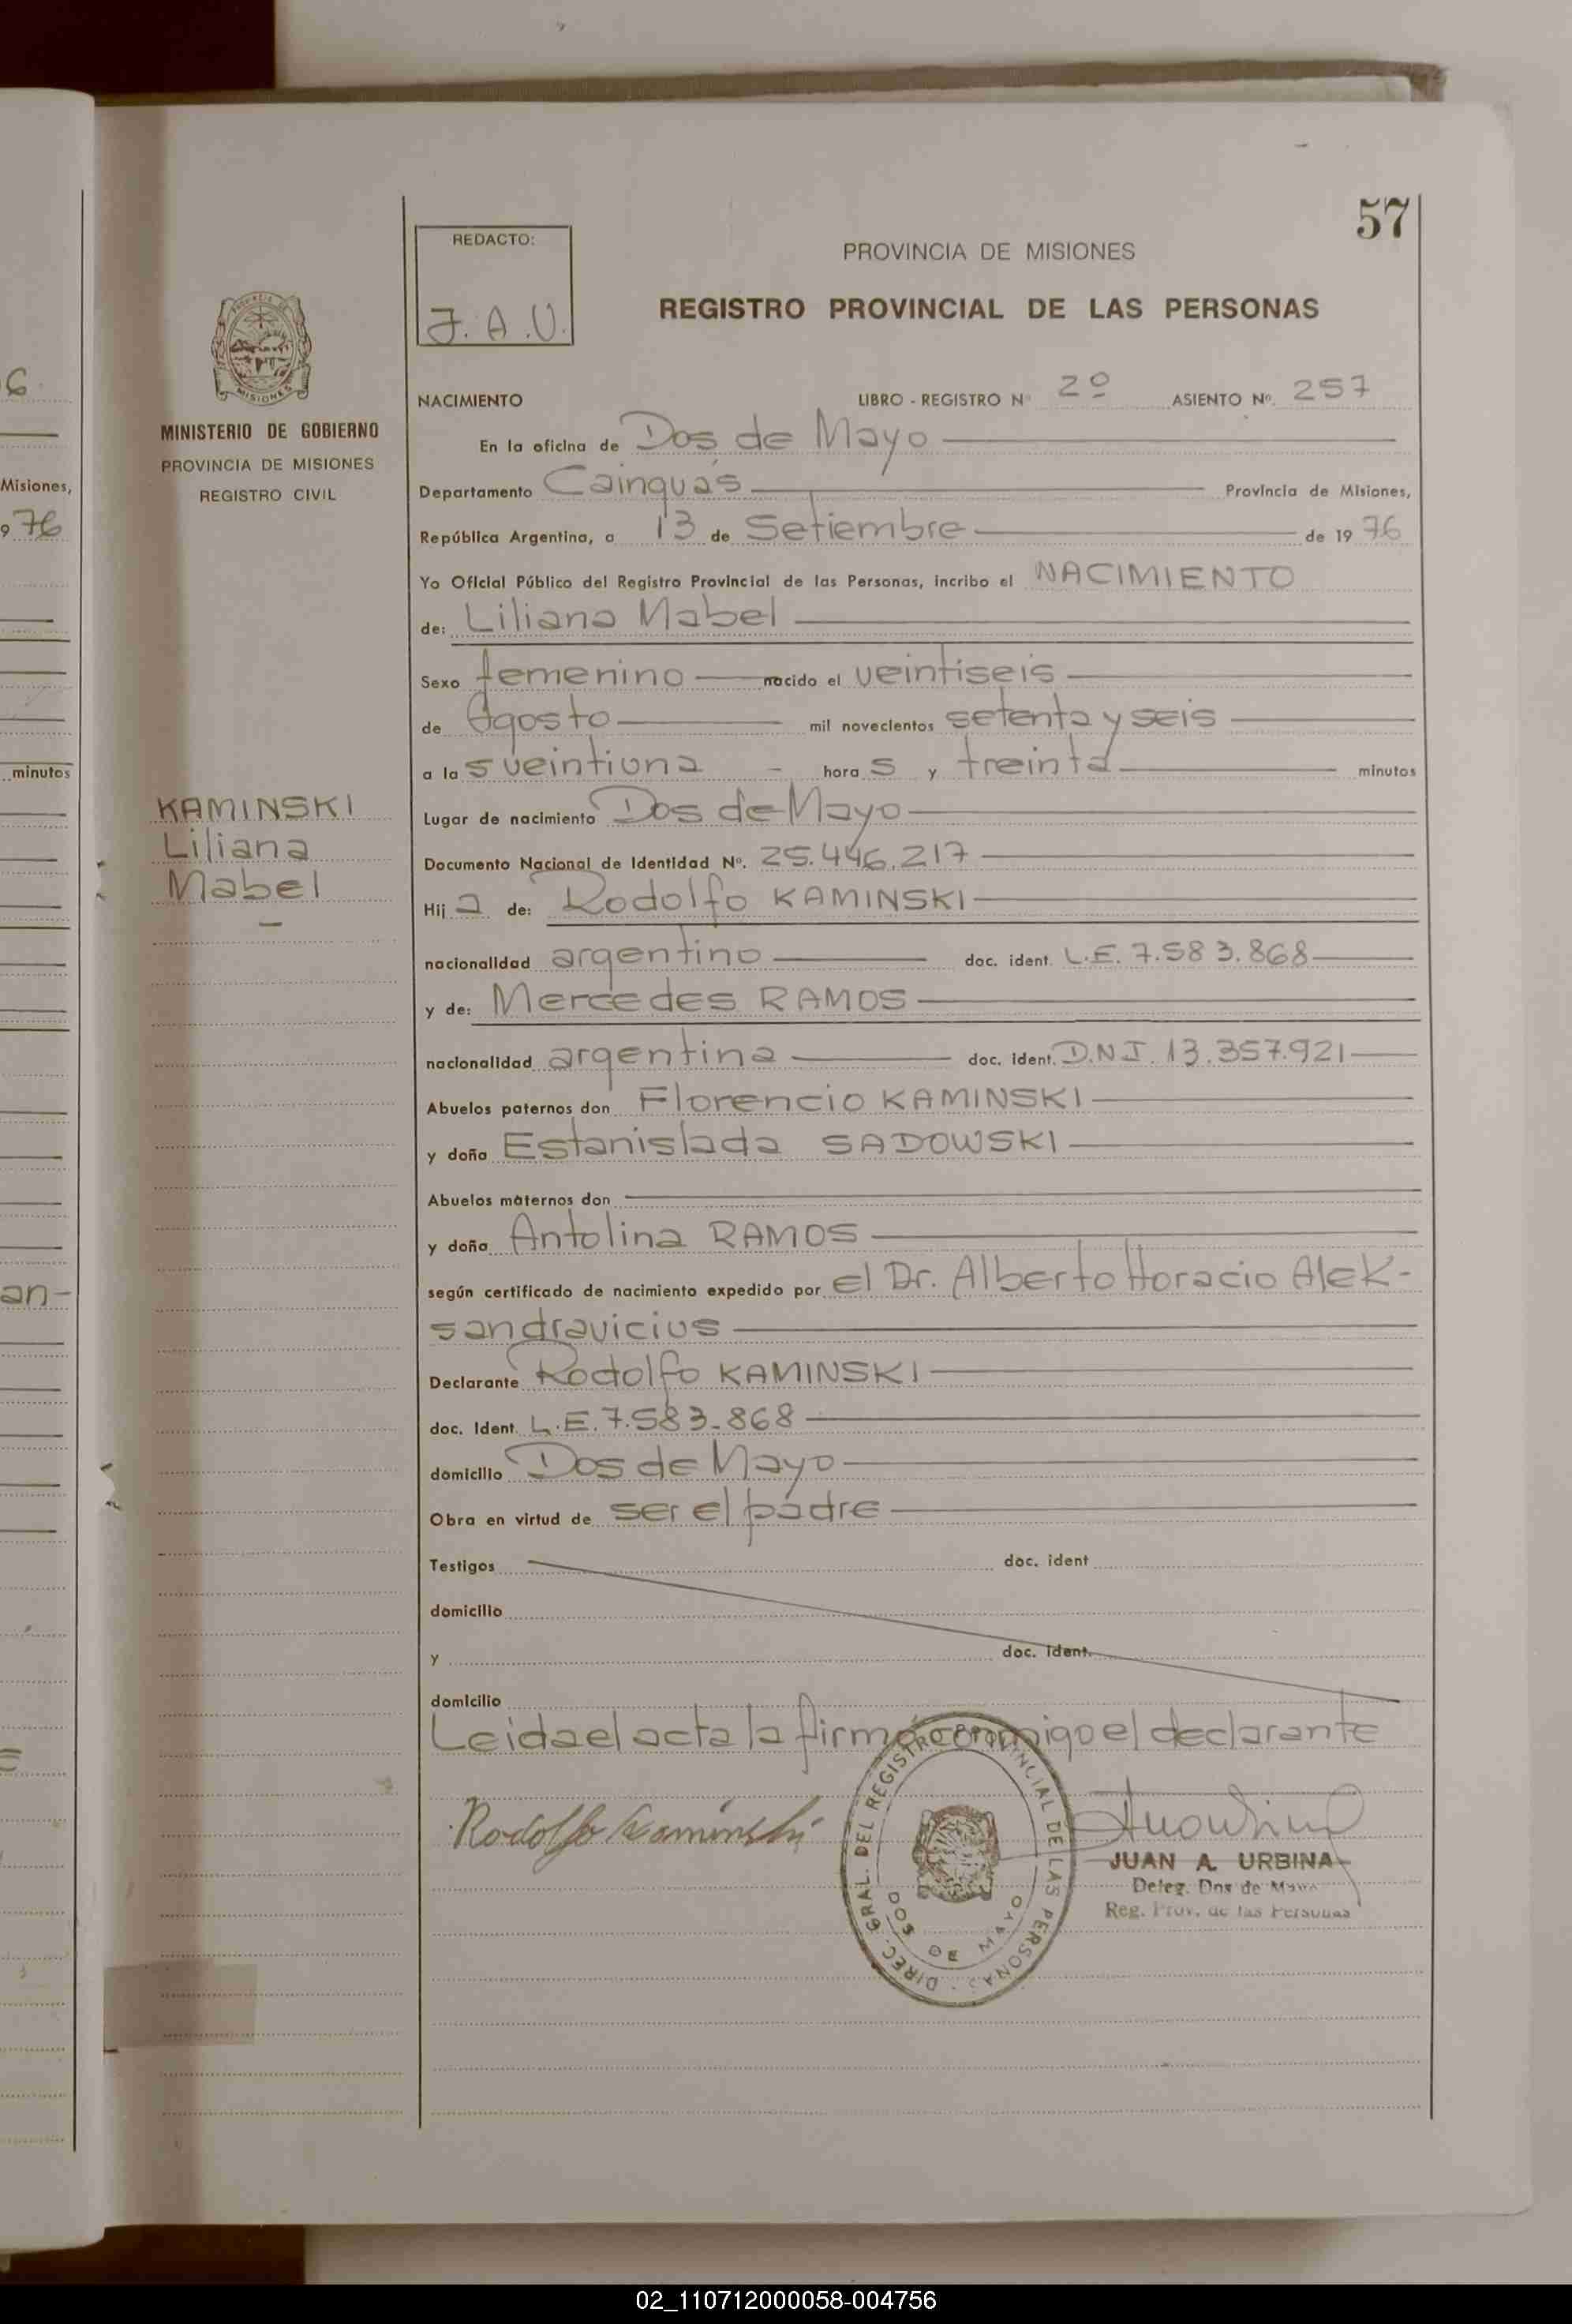 57
REDACTO:
J. A. U.
PROVINCIA DE MISIONES
REGISTRO PROVINCIAL DE LAS PERSONAS
MISIONES
MINISTERIO DE GOBIERNO
PROVINCIA DE MISIONES
REGISTRO CIVIL
KAMINSKI
Liliana
Mabel
NACIMIENTO LIBRO - REGISTRO Nº 2º ASIENTO Nº. 257
En la oficina de Dos de Mayo
Departamento Cainguás Provincia de Misiones,
República Argentina, a 13 de Setiembre de 1976
Yo Oficial Público del Registro Provincial de las Personas, incribo el NACIMIENTO
de: Liliana Mabel
Sexo femenino nacido el veintiseis
de Agosto mil novecientos setenta y seis
a las veintiuna - horas y treinta minutos
Lugar de nacimiento Dos de Mayo
Documento Nacional de Identidad Nº. 25.446.217
Hija de: Rodolfo KAMINSKI
nacionalidad argentino doc. ident. L.E. 7.583.868
y de: Mercedes RAMOS
nacionalidad argentina doc. ident. D.N.I. 13.357.921
Abuelos paternos don Florencio KAMINSKI
y doña Estanislada SADOWSKI
Abuelos maternos don
y doña Antolina RAMOS
según certificado de nacimiento expedido por el Dr. Alberto Horacio Alek-
sandravicius
Declarante Rodolfo KAMINSKI
doc. Ident. L.E. 7.583.868
domicilio Dos de Mayo
Obra en virtud de ser el padre
Testigos doc. ident
domicilio
y doc. ident.
domicilio
Leida el acta la firmó conmigo el declarante
Rodolfo Kaminski
DIREC. GRAL. DEL REGISTRO PROVINCIAL DE LAS PERSONAS
DOS DE MAYO
JUAN A. URBINA
Deleg. Dos de Mayo
Reg. Prov. de las Personas
6
Misiones,
9 76
minutos
an-
02_110712000058-004756